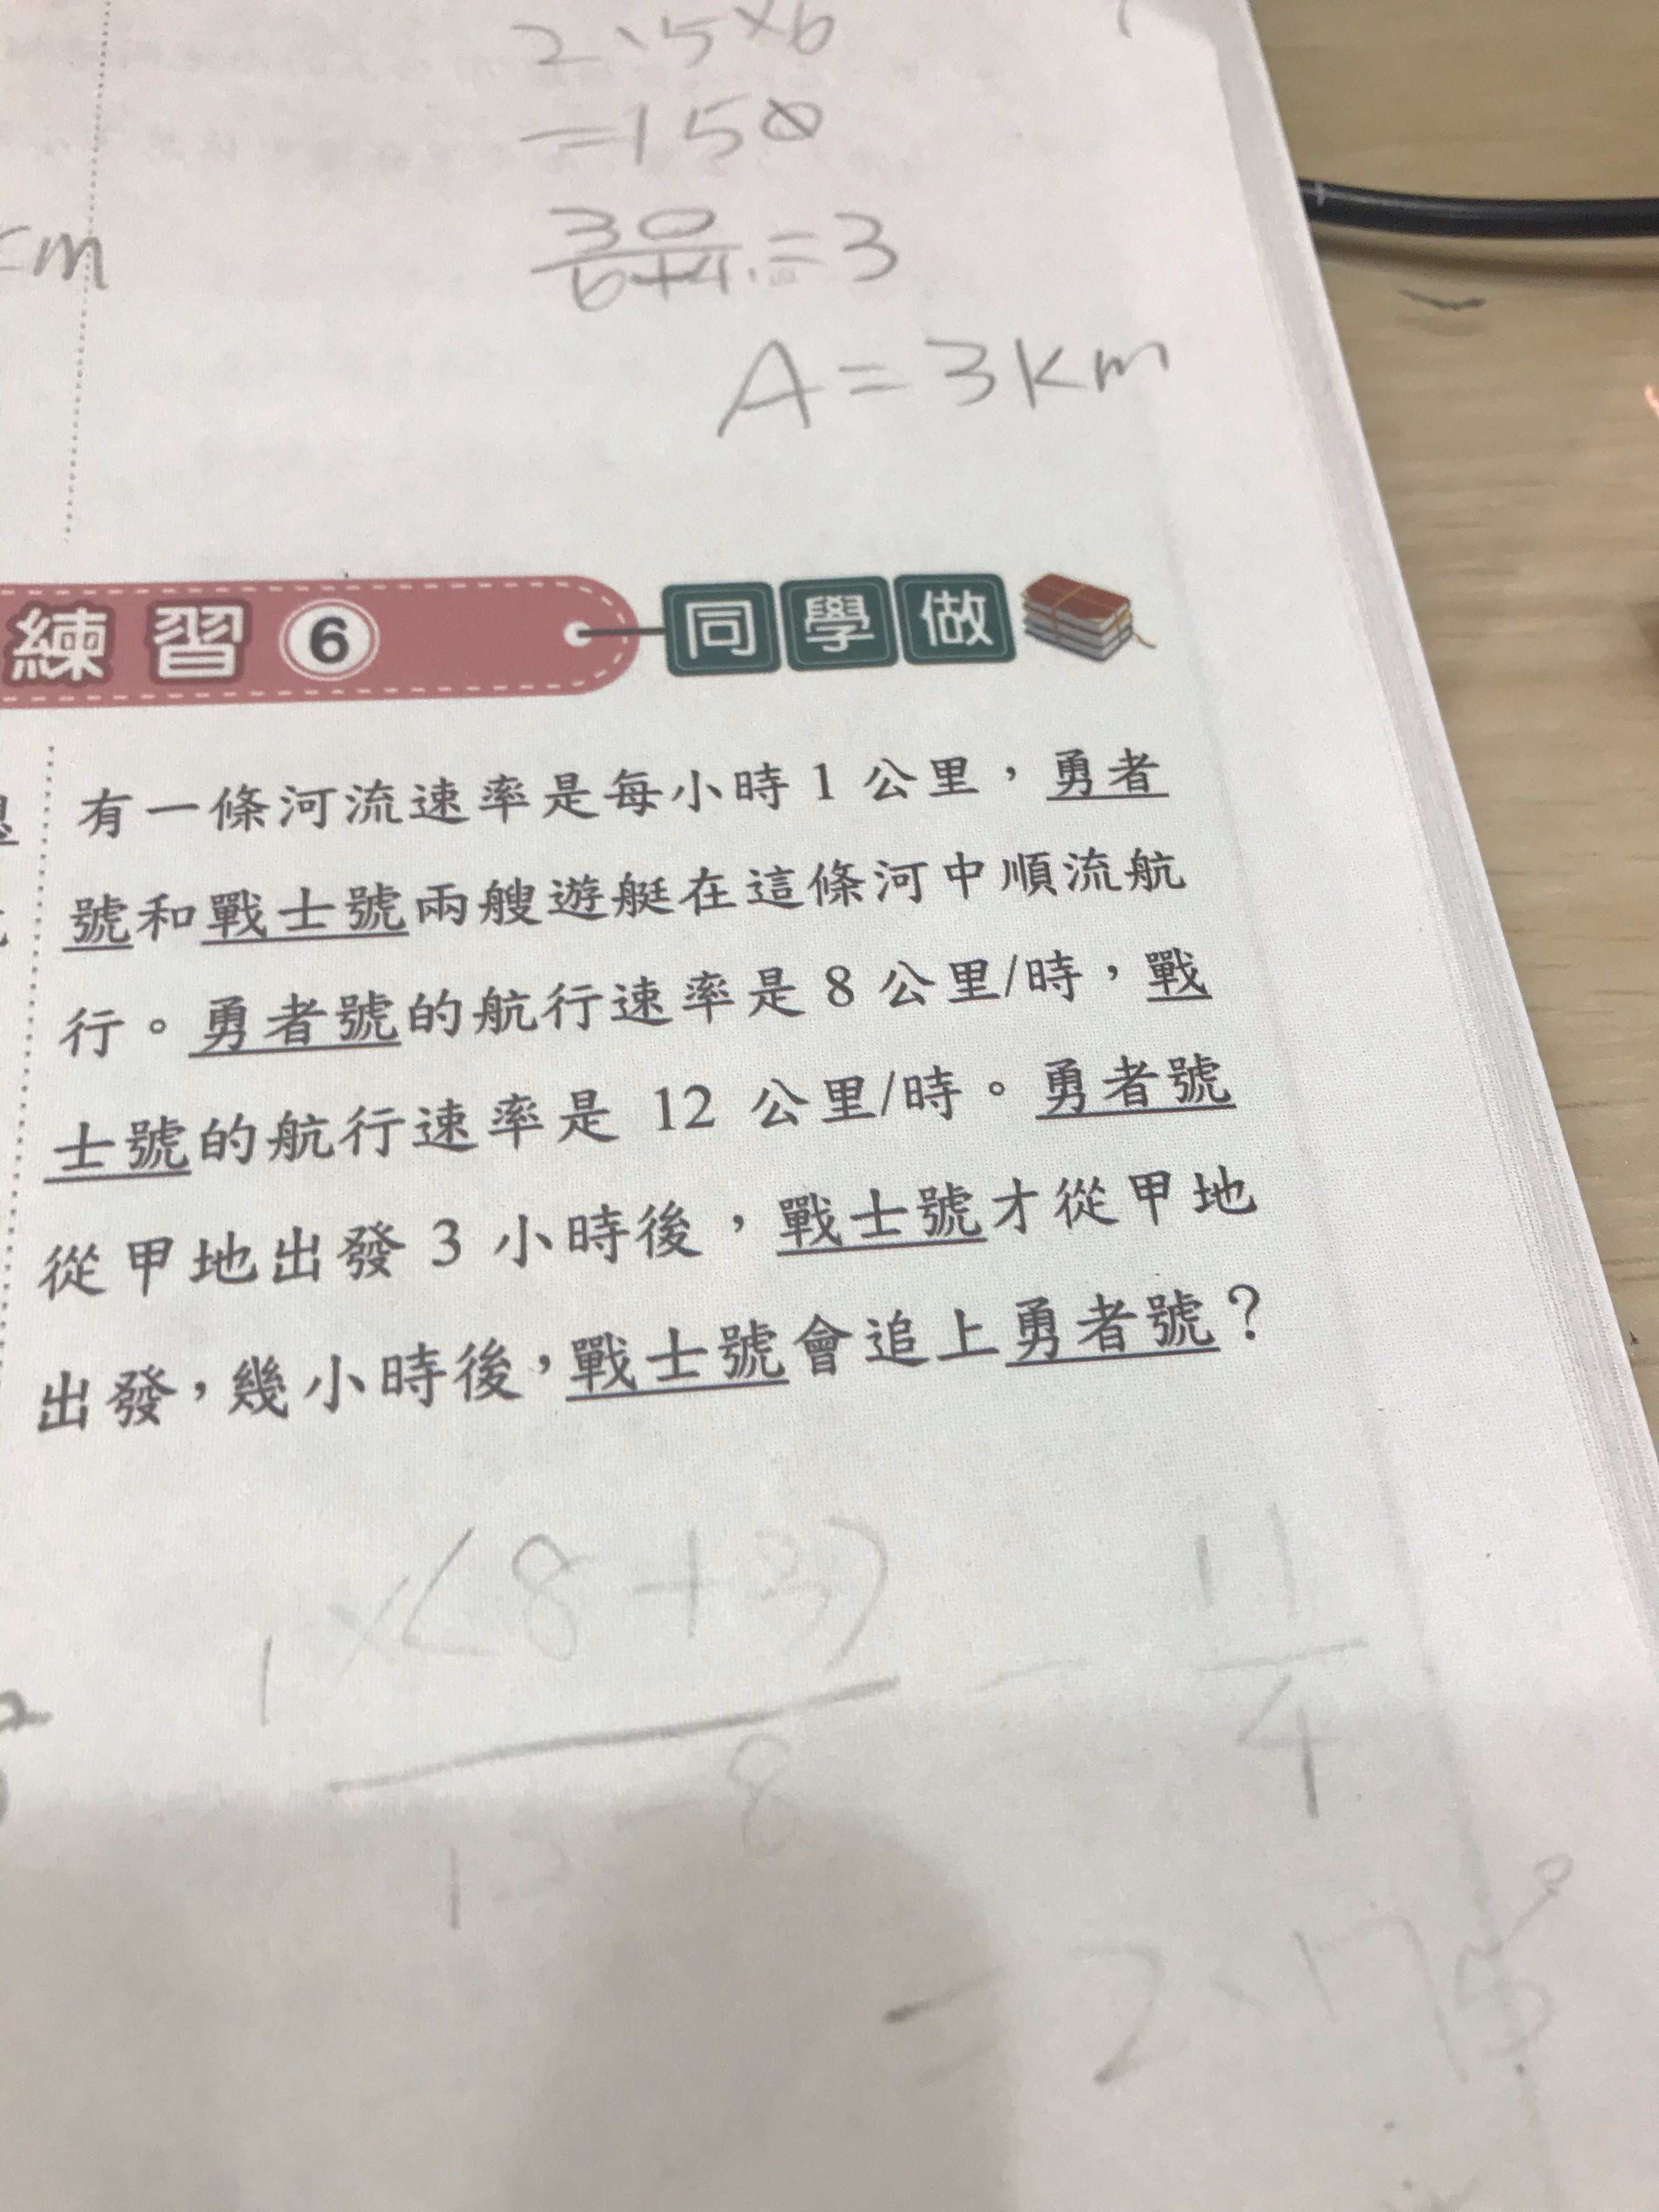 2.5×6
=150
km
30/6+4=3
A=3km
練習6 同學做
有一條河流速率是每小時1公里，勇者
號和戰士號兩艘遊艇在這條河中順流航
行。勇者號的航行速率是8公里/時，戰
士號的航行速率是 12 公里/時。勇者號
從甲地出發3小時後，戰士號才從甲地
出發，幾小時後，戰士號會追上勇者號？
1×(8+3)
11
8
4
12